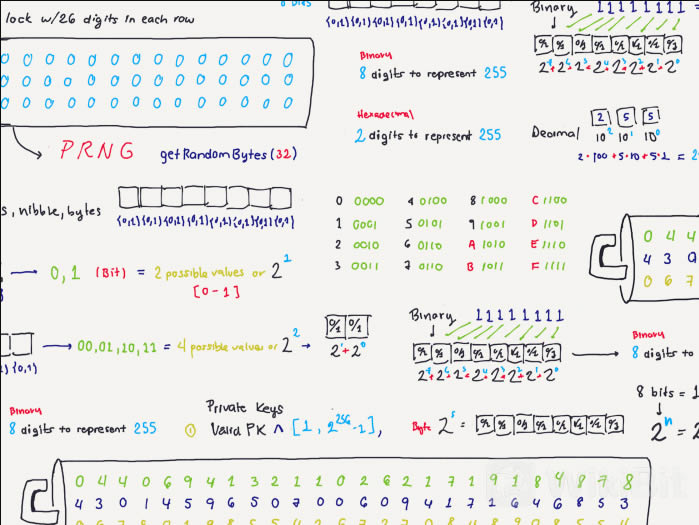 lock w/26 digits in each row
0 0 0 0 0 0 0 0 0 0 0 0
0 0 0 0 0 0 0 0 0 0 0 0
0 0 0 0 0 0 0 0 0 0 0 0
PRNG getRandomBytes(32)
{0,1} {0,1} {0,1} {0,1} {0,1} {0,1} {0,1} {0,1}
Binary
8 digits to represent 255
Hexadecimal
2 digits to represent 255
Binary 11111111 =
0/1 0/1 0/1 0/1 0/1 0/1 0/1 0/1
2⁷+2⁶+2⁵+2⁴+2³+2²+2¹+2⁰
Decimal 2 5 5
10² 10¹ 10⁰
2·100+5·10+5·1 = 2
s, nibble, bytes
{0,1} {0,1} {0,1} {0,1} {0,1} {0,1} {0,1} {0,1}
0 0000 4 0100 8 1000 C 1100
1 0001 5 0101 9 1001 D 1101
2 0010 6 0110 A 1010 E 1110
3 0011 7 0110 B 1011 F 1111
0 4 4
4 3 0
0 6 7
0,1 (Bit) = 2 possible values or 2¹
[0-1]
00,01,10,11 = 4 possible values or 2²
{0,1}
0/1 0/1
2¹+2⁰
Binary 11111111
0/1 0/1 0/1 0/1 0/1 0/1 0/1 0/1
2⁷+2⁶+2⁵+2⁴+2³+2²+2¹+2⁰
Binary
8 digits to
8 bits = 1
2ⁿ = 2
Binary
8 digits to represent 255
Private Keys
① Valid PK ∧ [1, 2²⁵⁶-1],
Byte 2⁸ = 0/1 0/1 0/1 0/1 0/1 0/1 0/1 0/1
0 4 4 0 6 9 4 1 3 2 1 1 0 2 6 2 2 1 7 1 9 1 8 4 8 7 8
4 3 0 1 4 5 9 6 5 0 7 0 0 6 0 9 4 1 7 1 6 4 6 8 5 3
WikiBit